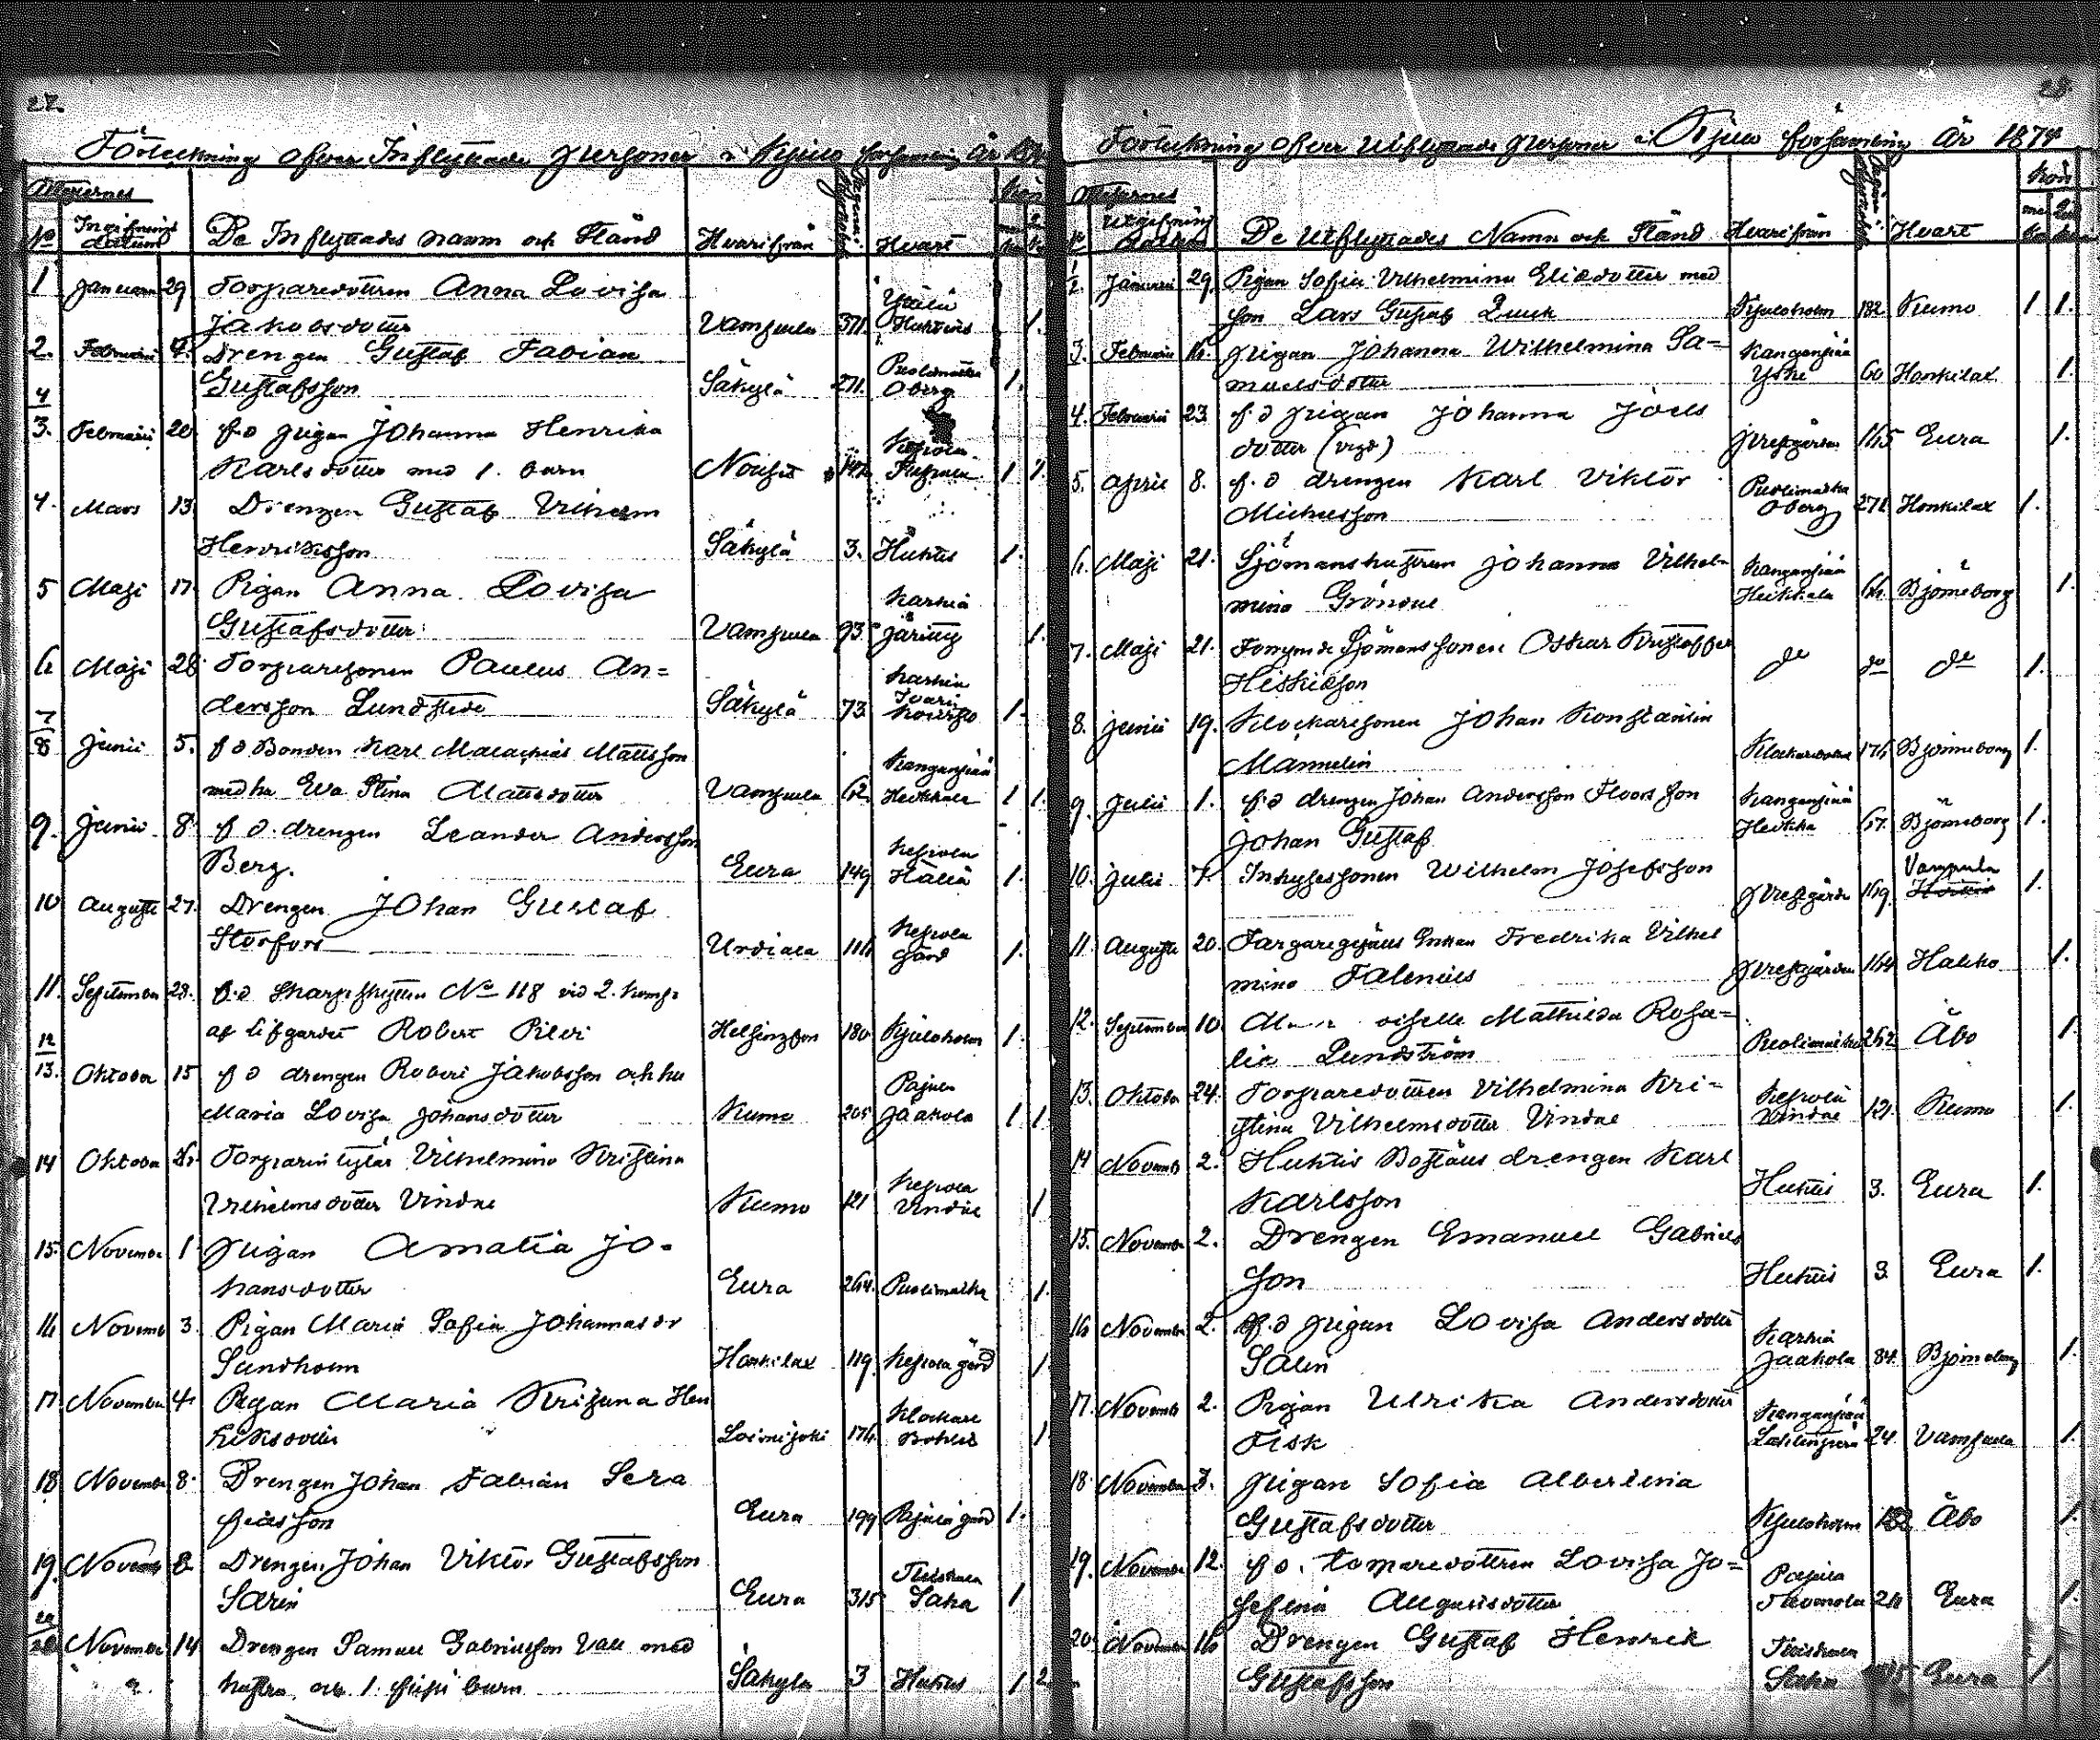 27.
Förteckning öfver Inflyttade personer i Kjulo församling år
Attesternes
No Ingifnings datum De Inflyttades namn och Stånd Hvarifrån Hvart Kön
1 Januari 29 Torparedottren Anna Lovisa
Jakobsdotter Vampula 371. Huktis 1.
2. Februari 4. Drengen Gustaf Fabian
Gustafsson Säkylä 271. Puolimatka Oberg 1.
4
3. Februari 20 f.d pigan Johanna Henrika
Karlsdotter med 1. barn Nousis Kepola 1 1.
4. Mars 13 Drengen Gustaf Vilhelm
Henriksson Säkylä 3. Huktis 1.
5 Maji 17 Pigan Anna Lovisa
Gustafsdotter Vampula 93 Karhia 1.
6 Maji 28 Torparesonen Paulus An=
dersson Lundstedt Säkylä 73 Karhia 1.
7
8 Junii 5. f d Bonden Karl Malachias Mattsson
med hu Eva Stina Mattsdotter Vampula 62 Kanganpää Heikkala 1 1.
9. Junii 8 f d. drengen Leander Andersson
Berg. Eura 149 Kepola Hallia 1.
10 Augusti 27. Drengen Johan Gustaf
Storfors Urdiala 114 Kepola gård 1.
11. September 28. f.d Skarpskytten No 118 vid 2. komp.
af Lifgardet Robert Pilvi Helsingfors 180 Kjuloholm 1.
12
13. Oktober 15 f d drengen Robert Jakobsson och hu
Maria Lovisa Johansdotter Kumo 205 Pajula Jaakola 1 1.
14 Oktober Vilhelmina Kristina
Vilhelmsdotter Vindal Kumo 121 Kepola Vindal 1
15. November 1 Pigan Amalia Jo-
hansdotter Eura 264. Puolimatka 1.
16 November 3. Pigan Maria Sofia Johannasdr
Sundholm Honkilax 119. Kepola gård 1.
17 November 4. Pigan Maria Kristina Hen
riksdotter Loimijoki 174. Klockare Bohle 1.
18 November 8. Drengen Johan Fabian Sera
fiasson Eura 199 Pajula gård 1.
19. November 8 Drengen Johan Viktor Gustafsson
Sarin Eura 315 Tuiskula Saha 1
20 November 14 Drengen Samuel Gabrielsson Vall med
hustru och 1. barn Säkylä 3 Huktis 1 2
28.
Förteckning öfver Utflyttade personer i Kjulo församling År 1874
Attesternes
Utgifning datum De Utflyttades Namn och Stånd Hvarifrån Hvart Kön
1
2. Januari 29. Pigan Sofia Vilhelmina Eliedotter med
son Lars Gustaf Kjuloholm 182 Kumo 1 1.
3. Februari 16. Pigan Johanna Wilhelmina Sa=
muelsdotter Kanganpää Yske 60 Honkilax 1.
4. Februari 23 f. d pigan Johanna Joels
dotter (vigd) Prestgården 165 Eura 1.
5. April 8. f. d drengen Karl Viktor
Michelsson Puolimatka Oberg 271 Honkilax 1.
6. Maji 21. Sjömanshustrun Johanna Vilhel-
mina Grönvall Kanganpää Heikkala 64. Björneborg 1.
7. Maji 21. Sjömans sonen Oskar Kristoffer
Hiskiasson do do do 1.
8. Junii 19. Klockaresonen Johan Konstantin
Mannelin 174 Björneborg 1.
9. Julii 1. f.d drengen Johan Andersson Floors son
Johan Gustaf Kanganpää Heikka 67. Björneborg 1.
10. Julii 7. Inhysessonen Wilhelm Josefsson Prestgården 169. Vampula 1.
11. Augusti 20. Enkan Fredrika Vilhel
mina Falenius Prestgården 164 Halikko 1.
12. September 10. Mathilda Rosa=
lia Lundström Puolimatka 262 Åbo 1.
13. Oktober 24. Torparedottren Vilhelmina Kri-
stina Vilhelmsdotter Vindal Kepola Vindal 121. Kumo 1.
14 November 2. Huktis Boställs drengen Karl
Karlsson Huktis 3. Eura 1.
15. November 2. Drengen Emanuel Gabriels
son Huktis 3. Eura 1.
16 November 2. f.d pigan Lovisa Andersdotter
Salin Karhia Jaakola 84. Björneborg 1.
17. November 2. Pigan Ulrika Andersdotter
Fisk Kanganpää 24. Vampula 1.
18. November 7. Pigan Sofia Albertina
Gustafsdotter Kjuloholm 182 Åbo 1.
19. November 12. f d. torparedottren Lovisa Jo=
sefina Augustsdotter Pajula 211 Eura 1.
20. November 16 Drengen Gustaf Henrik
Gustafsson Tuiskula Saha Eura 1.